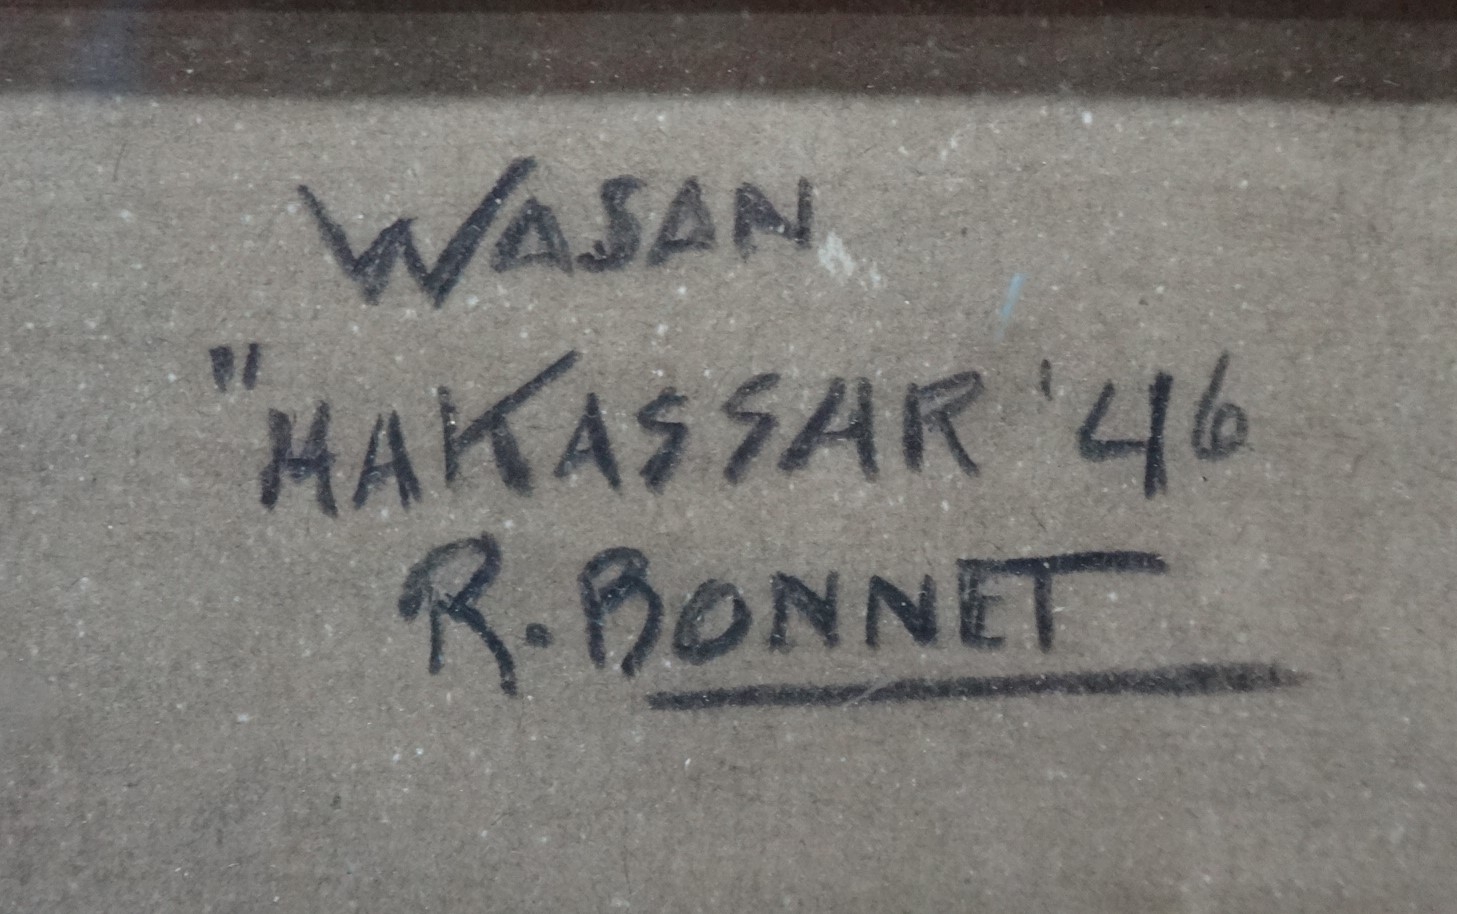 WASAN
"MAKASSAR '46
R. BONNET